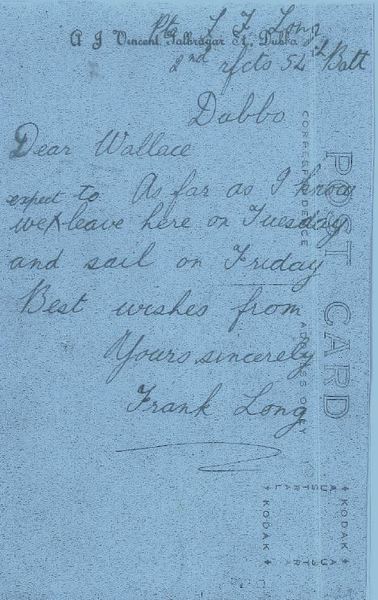 Pte L F Long
A J Vincent Talbragar St, Dubbo
2nd rfcts 54th Batt
Dubbo
Dear Wallace
As far as I know
we expect to leave here on Tuesday
and sail on Friday
Best wishes from
Yours sincerely
Frank Long
POST CARD
CORRESPONDENCE
ADDRESS ONLY
AUSTRAL
KODAK
KODAK